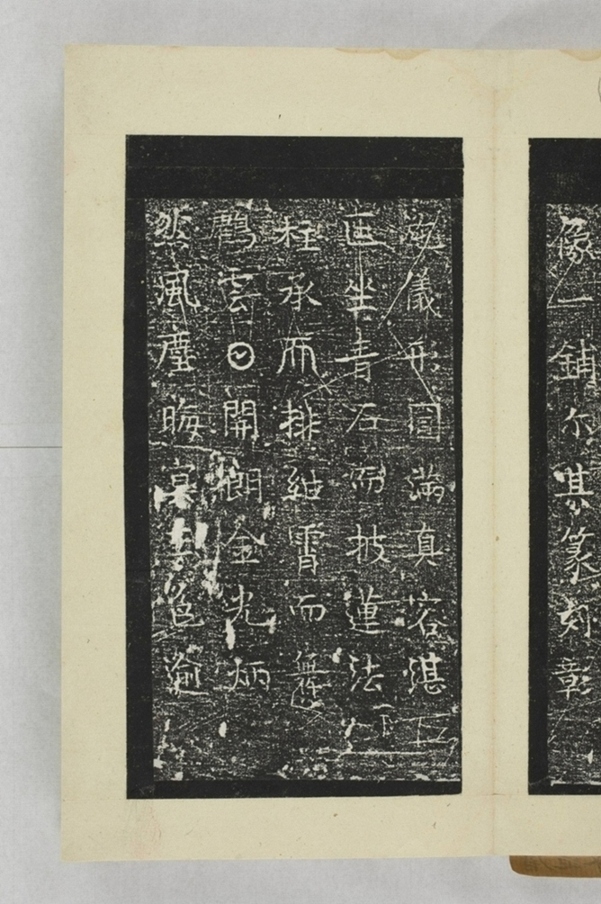 像一鋪尒其篆刻彰
儀形圓滿真容湛
匠坐青石而披蓮法
柱承而排紺霄而無
鶴雲日開朗金光炳
然風塵晦冥其色逾